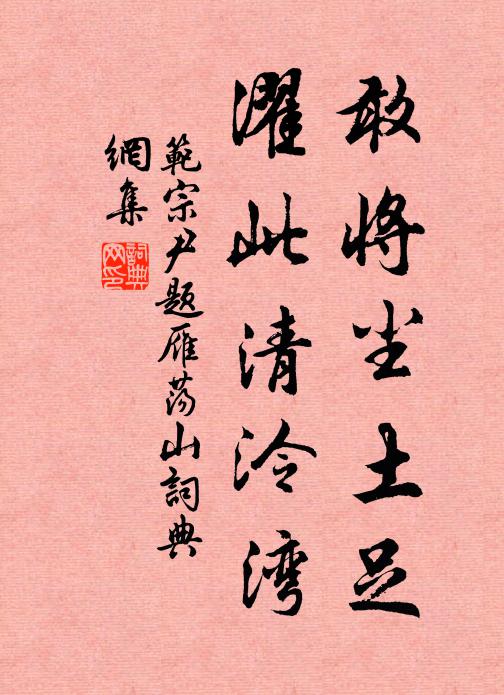 敢将尘土足
濯此清泠湾
範宗尹题雁荡山詞典
網集
詞典网印